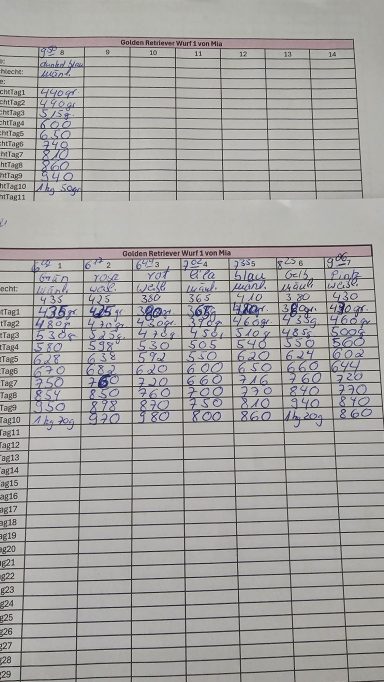 Golden Retriever Wurf 1 von Mia
8 9 10 11 12 13 14
dunkel blau
hlecht: männl.
chtTag1 440gr
chtTag2 490gr
chtTag3 515g.
chtTag4 600
chtTag5 650
chtTag6 740
chtTag7 810
chtTag8 860
chtTag9 940
chtTag10 1kg 50gr
chtTag11
Golden Retriever Wurf 1 von Mia
1 2 3 4 5 6 7
Grün rosa rot lila blau Gelb Pink
echt: männl. weibl. weibl. männl. männl. männl. weibl.
435 425 380 365 410 380 430
Tag1
Tag2 480g 470g 430gr. 390g 460gr. 439g 460gr.
Tag3 530g 525g 470g 450g 510g 485g 500g
Tag4 580 598 530 505 540 550 560
Tag5 628 638 592 550 620 624 602
Tag6 670 682 620 600 650 660 644
Tag7 750 760 720 660 716 760 720
Tag8 854 850 760 700 770 840 770
Tag9 950 898 870 750 810 940 840
Tag10 1kg 70g 970 980 800 860 1kg 20g 860
Tag11
Tag12
Tag13
Tag14
Tag15
ag16
ag17
ag18
ag19
ag20
g21
g22
g23
g24
g25
g26
g27
28
29